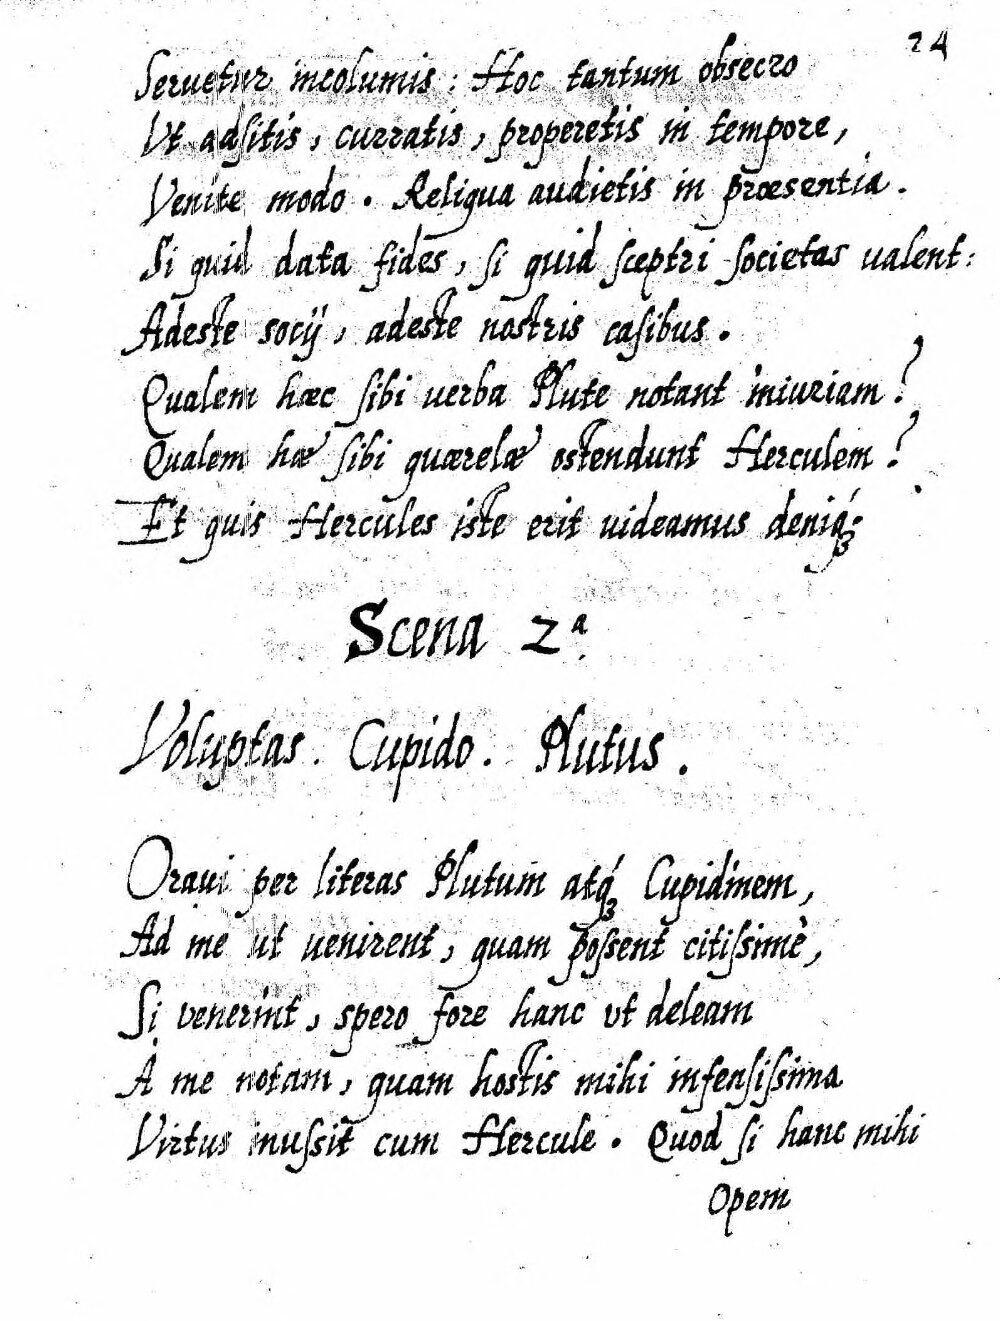 24
Seruetur incolumis : Hoc tantum obsecro
Ut adsitis, curratis, properetis in tempore,
Venite modo. Reliqua audietis in præsentia.
Si quid data fides, si quid sceptri societas ualent:
Adeste socij, adeste nostris casibus.
Qualem hæc sibi uerba Plute notant iniuriam?
Qualem hæ sibi quærelæ ostendunt Herculem?
Et quis Hercules iste erit uideamus deniq́ꝫ
Scena 2ª
Voluptas. Cupido. Plutus.
Oraui per literas Plutum atq́ꝫ Cupidinem,
Ad me ut uenirent, quam possent citissimè,
Si venerint, spero fore hanc vt deleam
A me notam, quam hostis mihi infensissima
Virtus inussit cum Hercule. Quod si hanc mihi
Opem